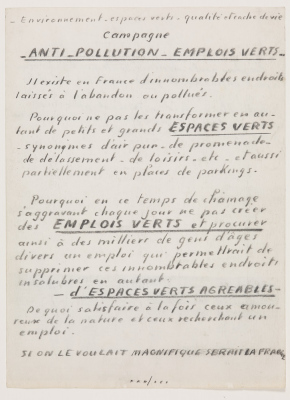 _ Environnement _ espaces verts _ qualité et cadre de vie
Campagne
_ ANTI _ POLLUTION _ EMPLOIS VERTS _
Il existe en France d'innombrables endroits
laissés à l'abandon ou pollués.
Pourquoi ne pas les transformer en au-
tant de petits et grands ESPACES VERTS
_ synonymes d'air pur _ de promenade_
_ de délassement _ de loisirs _ etc _ et aussi
partiellement en places de parkings.
Pourquoi en ce temps de chômage
s'aggravant chaque jour ne pas créer
des EMPLOIS VERTS et procurer
ainsi à des milliers de gens d'âges
divers un emploi qui permettrait de
supprimer ces innombrables endroits
insalubres en autant
_ d'ESPACES VERTS AGREABLES _
De quoi satisfaire à la fois ceux amou-
reux de la nature et ceux recherchant un
emploi.
SI ON LE VOULAIT MAGNIFIQUE SERAIT LA FRANCE
.../...